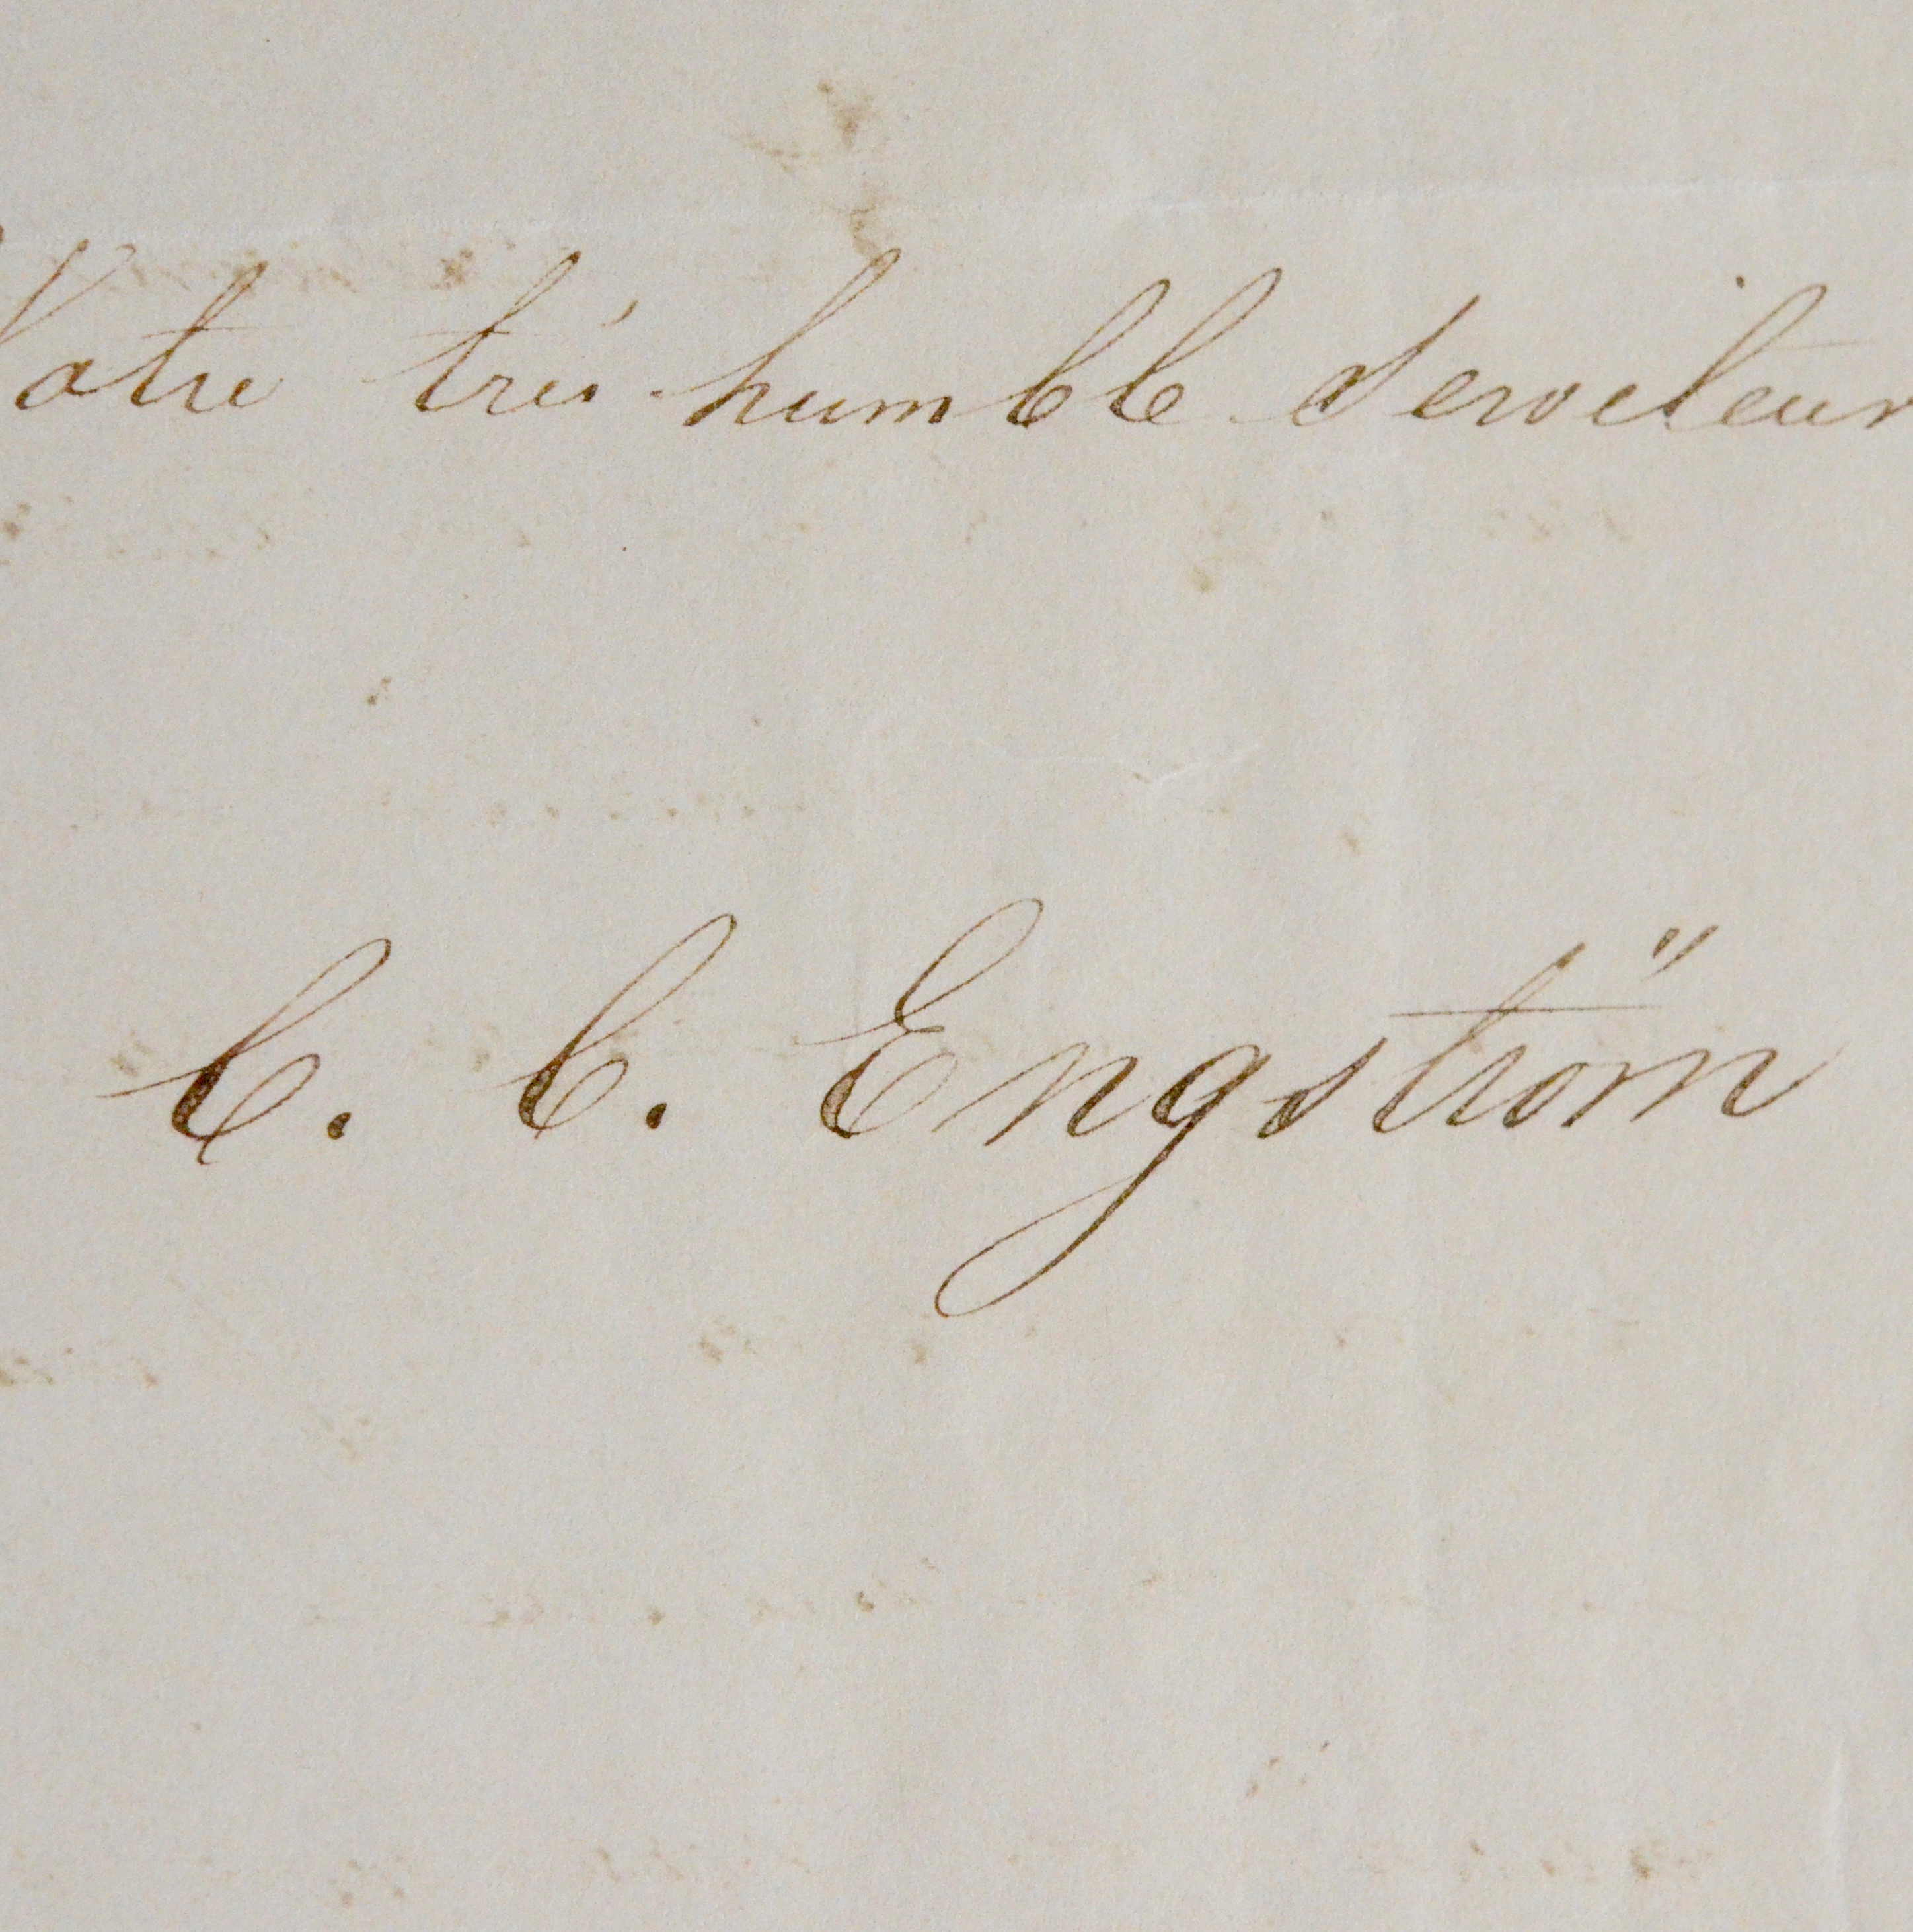 Votre trés humble Serviteur
C. C. Engström